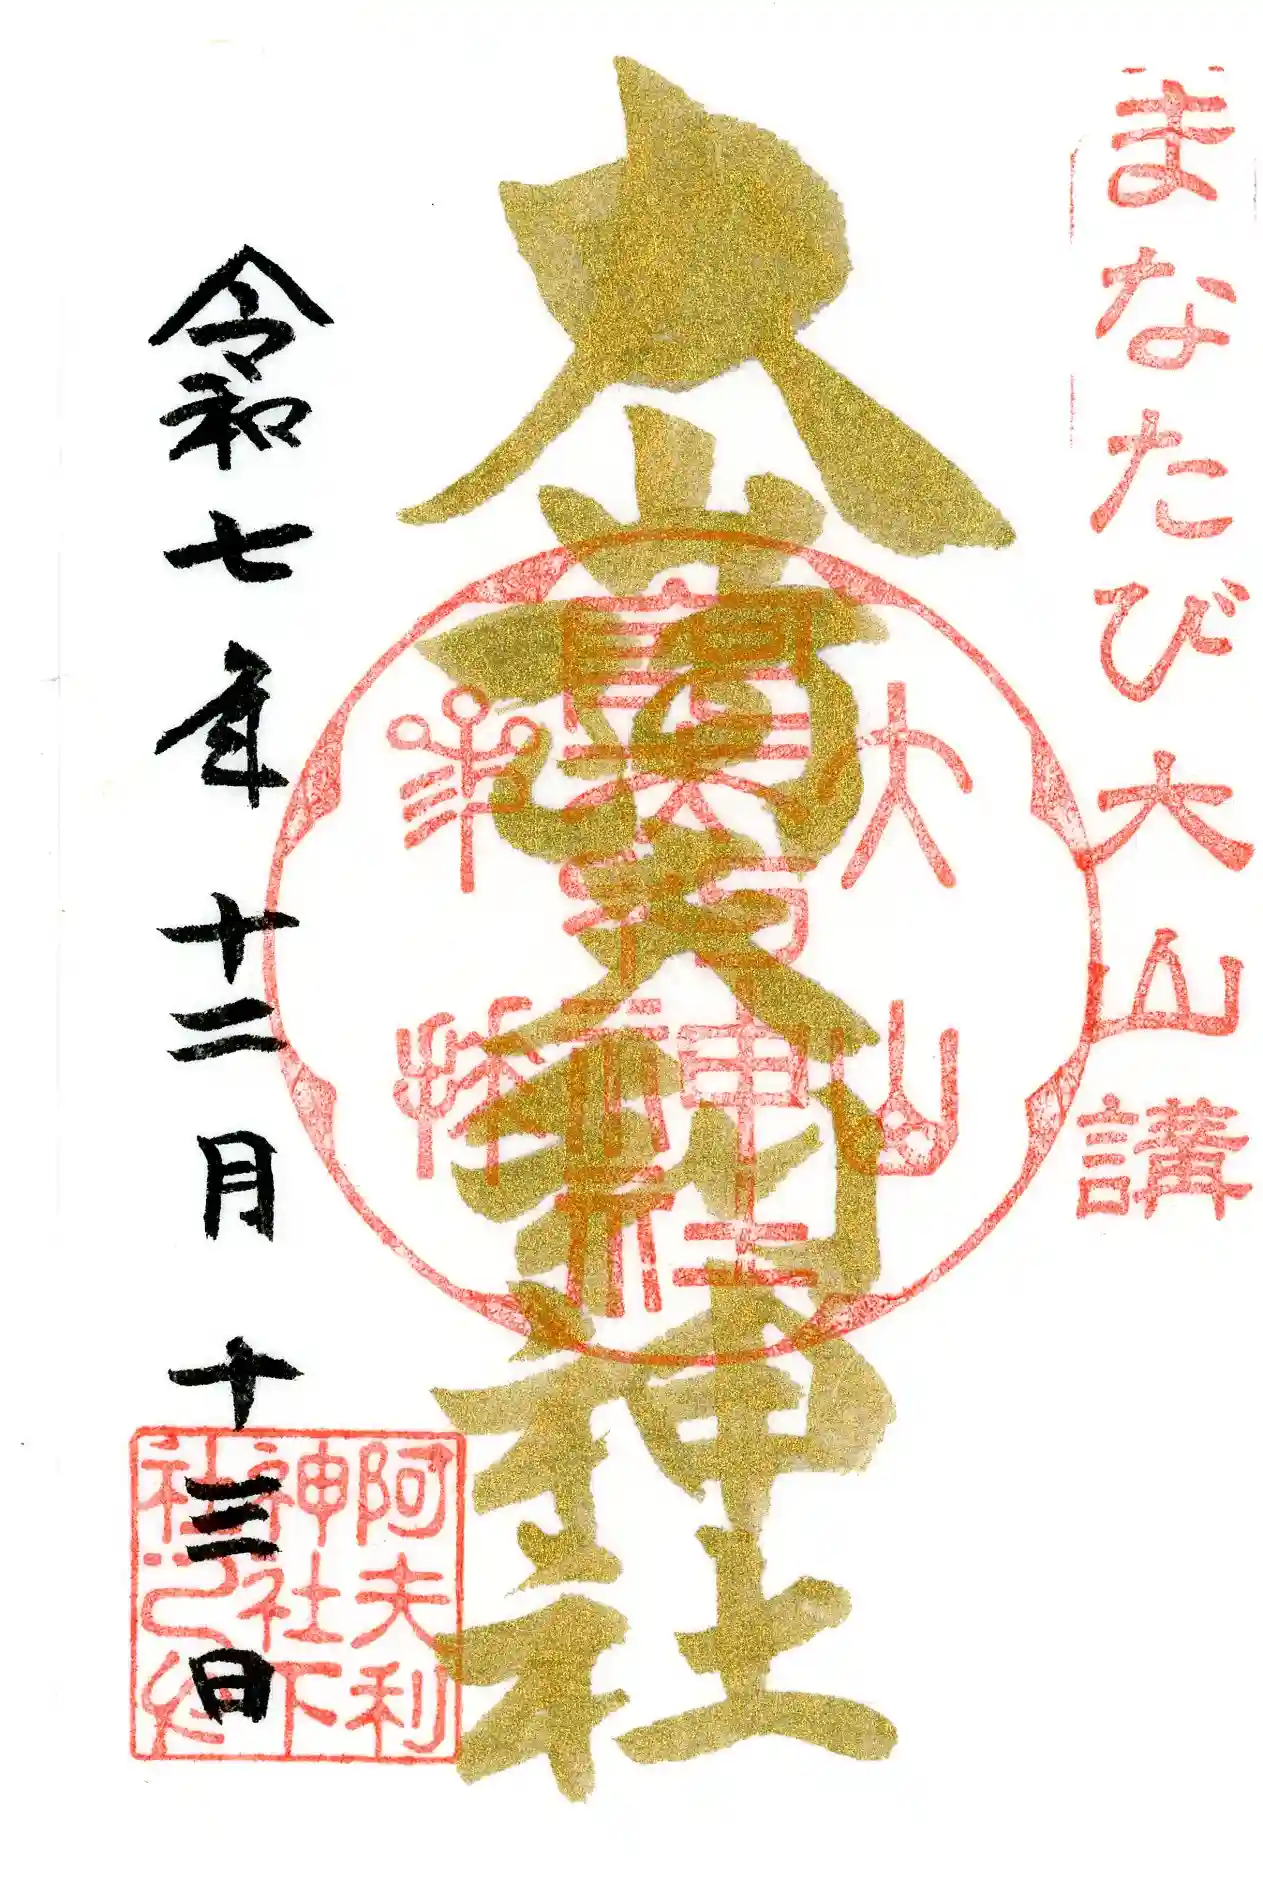 まなたび大山講
大山阿夫利神社
令和七年十二月十三日
阿夫利
神社下
社之印